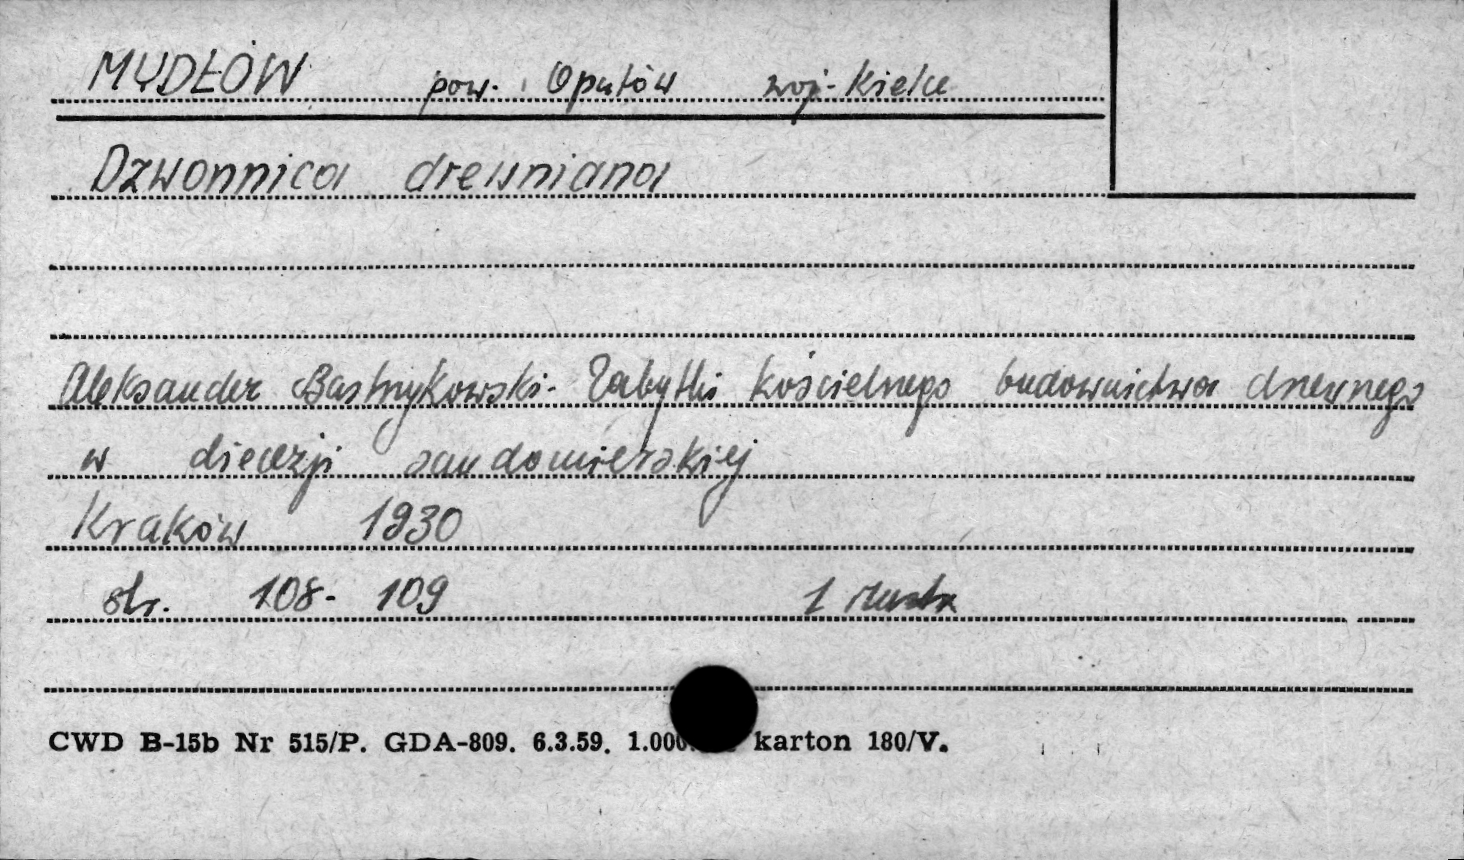 MYDŁÓW pow. Opatów woj. Kielce
Dzwonnica drewniana
Aleksander Bastrzykowski - Zabytki kościelnego budownictwa drewnego
w diecezji sandomierskiej
Kraków 1930
str. 108-109 1 ilustr
CWD B-15b Nr 515/P. GDA-809. 6.3.59. karton 180/V.